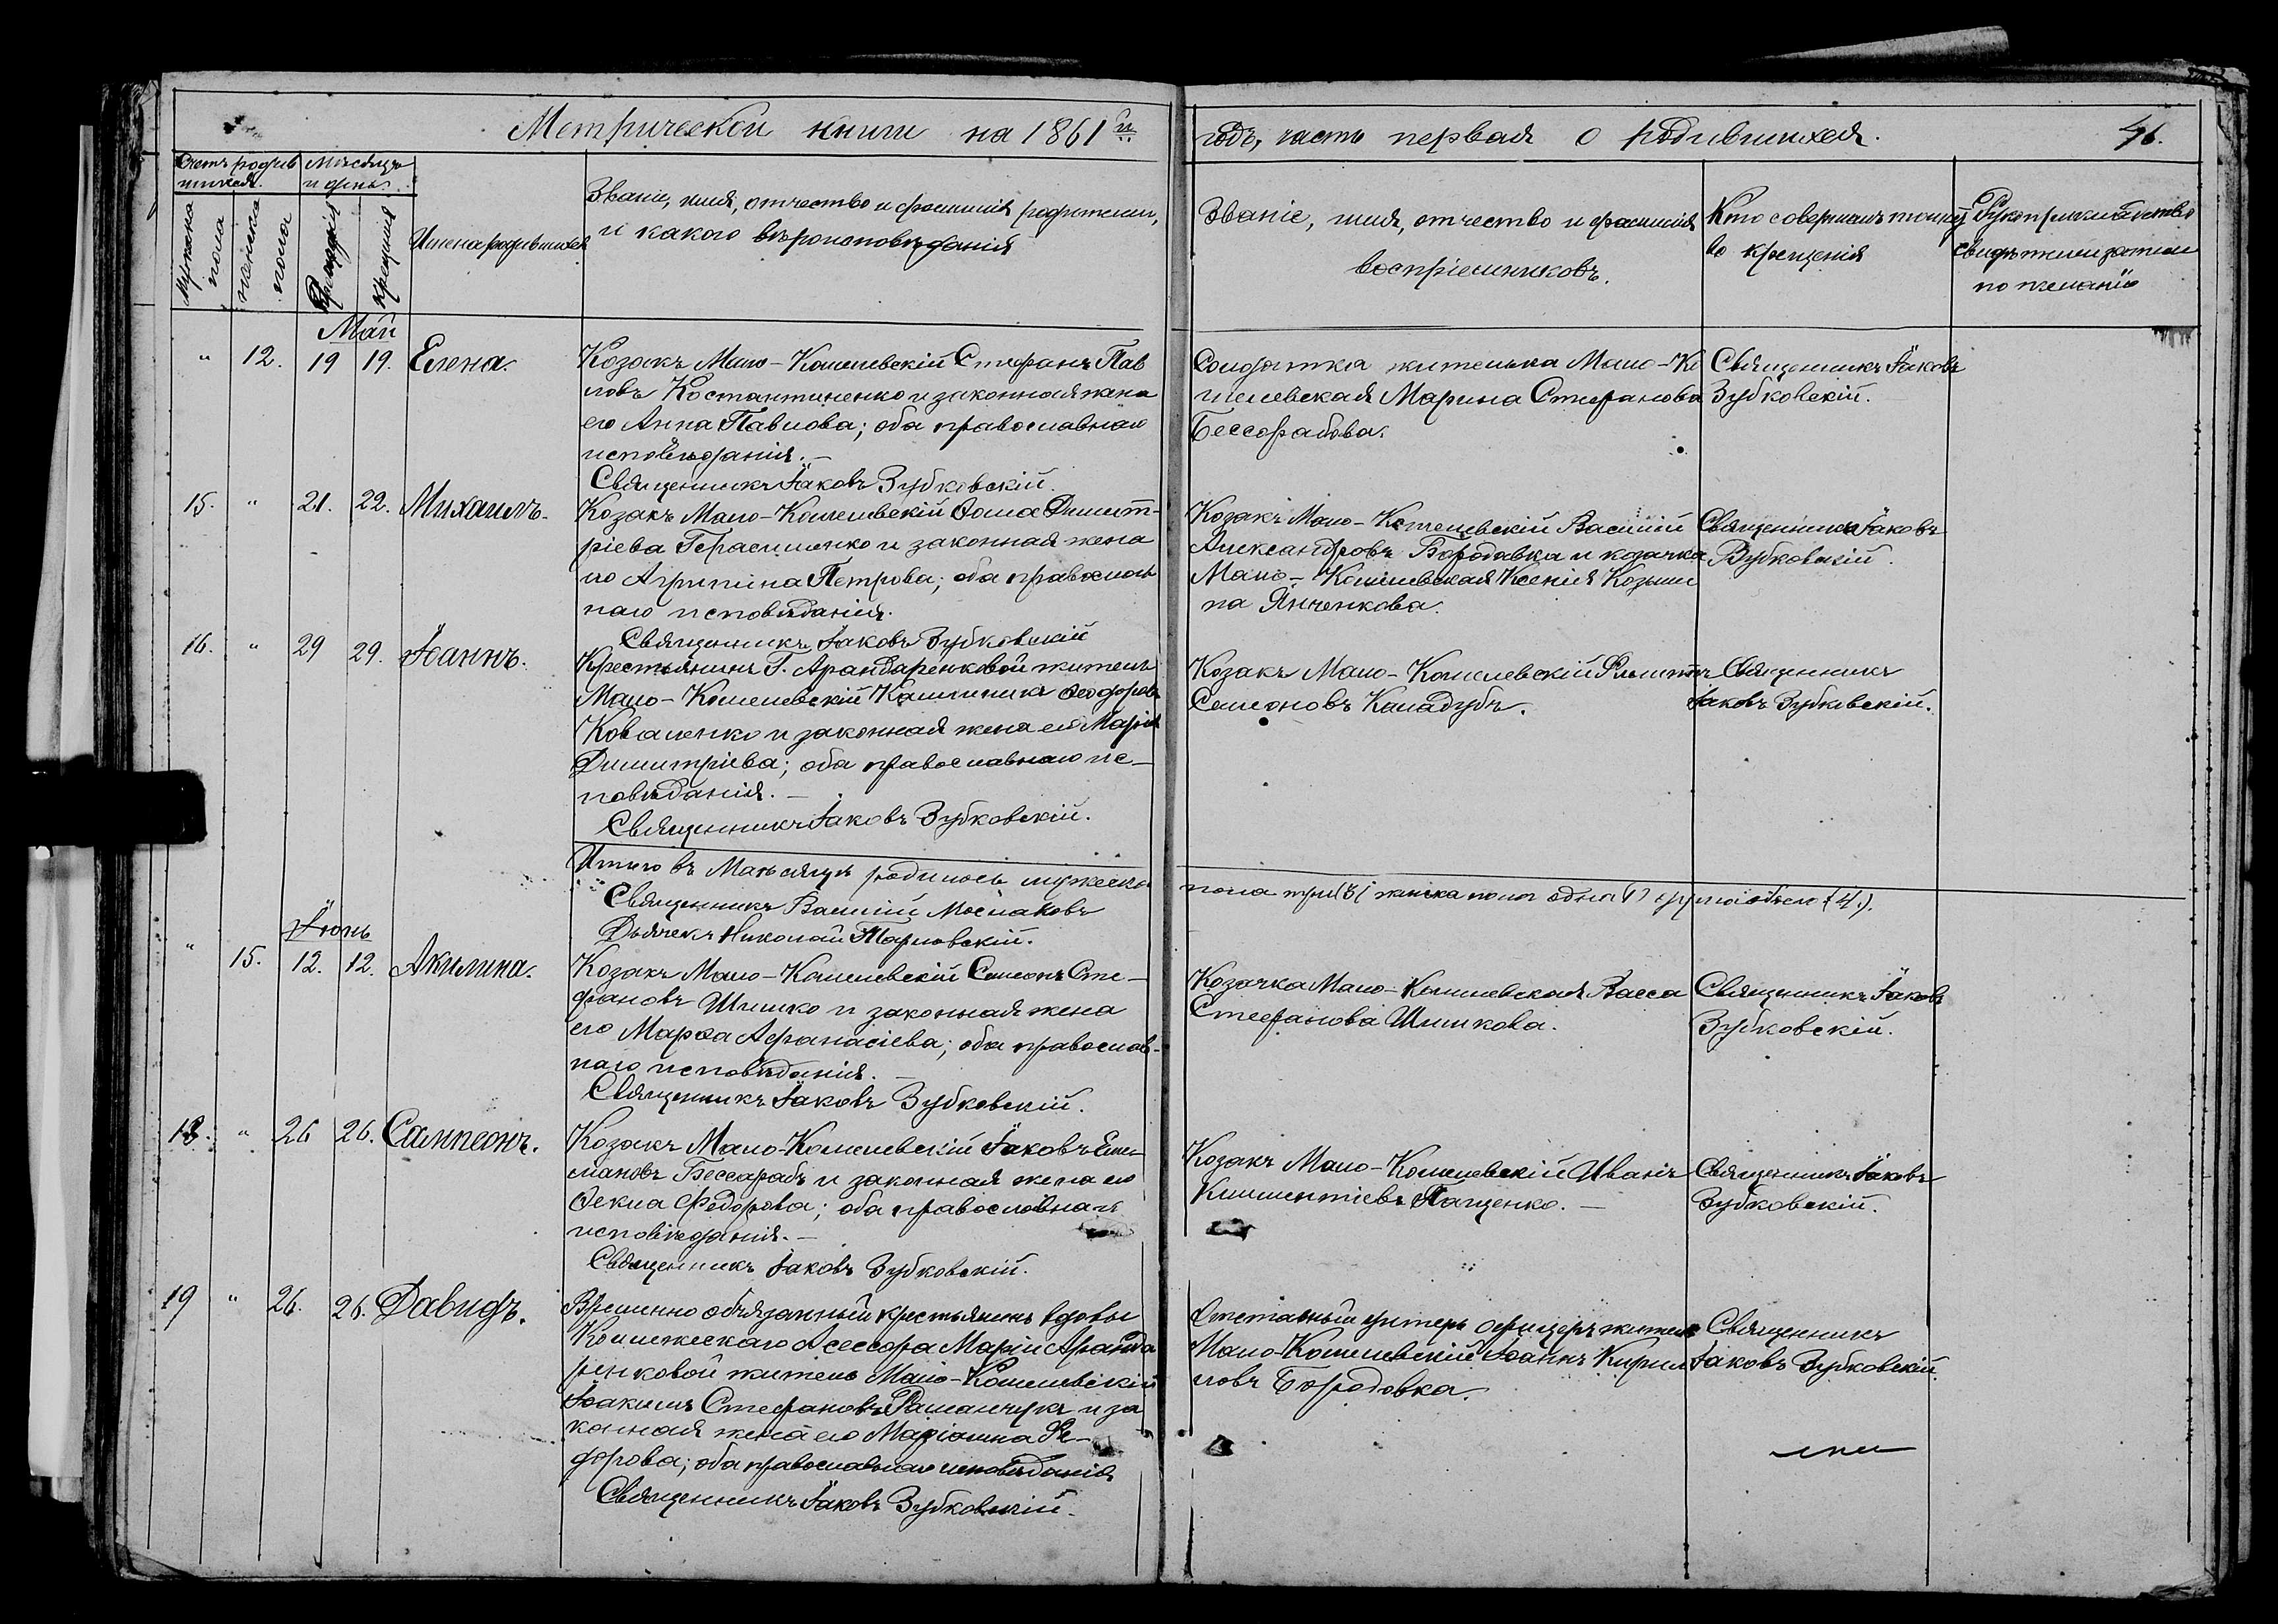 Метрической книги на 1861й
годъ, часть первая о родившихся.
46.
Счетъ родив
шихся.
Мѣсяцъ
и день.
Мужеска
пола
женска
пола
Рожденія
крещенія
Имена родившихся
Званіе, имя, отчество и фамилія родителей,
и какого вѣроисповѣданія
Званіе, имя, отчество и фамилія
воспріемниковъ.
Кто совершалъ таинст
во крещенія
Рукоприкладство
свидѣтелей записи
по желанію
Май
" 12. 19 19. Елена.
Козакъ Мало-Кошелевскій Стефанъ Пав
ловъ Костантиненко и законная жена
его Анна Павлова; оба православнаго
исповѣданія.—
Священникъ Іаковъ Зубковскій.
Солдатка жителька Мало-Ко
шелевская Марина Стефанова
Бессорабова.
Священникъ Іаковъ
Зубковскій.
15. " 21. 22. Михаилъ.
Козакъ Мало-Кошелевскій Ѳома Димит-
ріевъ Герасименко и законная жена
его Агрипина Петрова; оба православ
наго исповѣданія.
Священникъ Іаковъ Зубковскій
Козакъ Мало-Кошелевскій Василій
Александровъ Бородавка и козачка
Мало-Кошелевская Ксенія Козьми
на Янченкова.
Священникъ Іаковъ
Зубковскій.
16. " 29 29. Іоаннъ.
Крестьянинъ Г. Арандаренковой житель
Мало-Кошелевскій Каллиникъ Ѳеодоровъ
Коваленко и законная жена его Марія
Димитріева; оба православнаго ис-
повѣданія.—
Священникъ Іаковъ Зубковскій.
Козакъ Мало-Кошелевскій
Семеоновъ Каладубъ.
Священникъ
Іаковъ Зубковскій.
Итого въ Маѣ мѣсяцѣ родилось мужеска
пола три (3) женска пола одна (1) обоего (4.).
Священникъ Василій
Дьячекъ Николай
Іюнь
" 15. 12. 12. Акилина.
Козакъ Мало-Кошелевскій Симеонъ Сте-
фановъ Шишко и законная жена
его Марѳа Афанасіева; оба православ-
наго исповѣданія.—
Священникъ Іаковъ Зубковскій.
Козачка Мало-Кошелевская Васса
Стефанова Шишкова.
Священникъ Іаковъ
Зубковскій.
18. " 26 26. Сампсонъ.
Козакъ Мало-Кошелевскій Іаковъ Еме-
ліановъ Бессарабъ и законная жена его
Ѳекла Федорова; оба православнаго
исповѣданія.—
Священникъ Іаковъ Зубковскій.
Козакъ Мало-Кошелевскій Иванъ
Климентіевъ Пащенко.—
Священникъ Іаковъ
Зубковскій.
19 " 26. 26. Давидъ.
Временно обязанный крестьянинъ вдовы
Коллежскаго Асессора Маріи Аранда
ренковой житель Мало-Кошелевскій
Іоакимъ Стефановъ Романчукъ и за
конная жена его Маріанна Фе-
дорова; оба православнаго исповѣданія
Священникъ Іаковъ Зубковскій.
Отставный унтеръ офицеръ житель
Мало-Кошелевскій Іоаннъ Кирил
ловъ Бородовка.
Священникъ
Іаковъ Зубковскій.